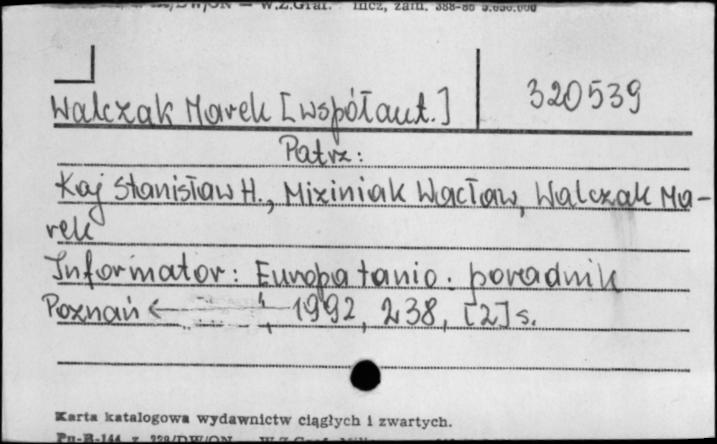 W.Z.Graf.
320539
Walczak Marek [współaut.]
Patrz:
Kaj Stanisław H., Miziniak Wacław, Walczak Ma-
rek
Informator: Europa tanio: poradnik
Poznań ←, 1992, 238, [2] s.
Karta katalogowa wydawnictw ciągłych i zwartych.
Pu-B-144